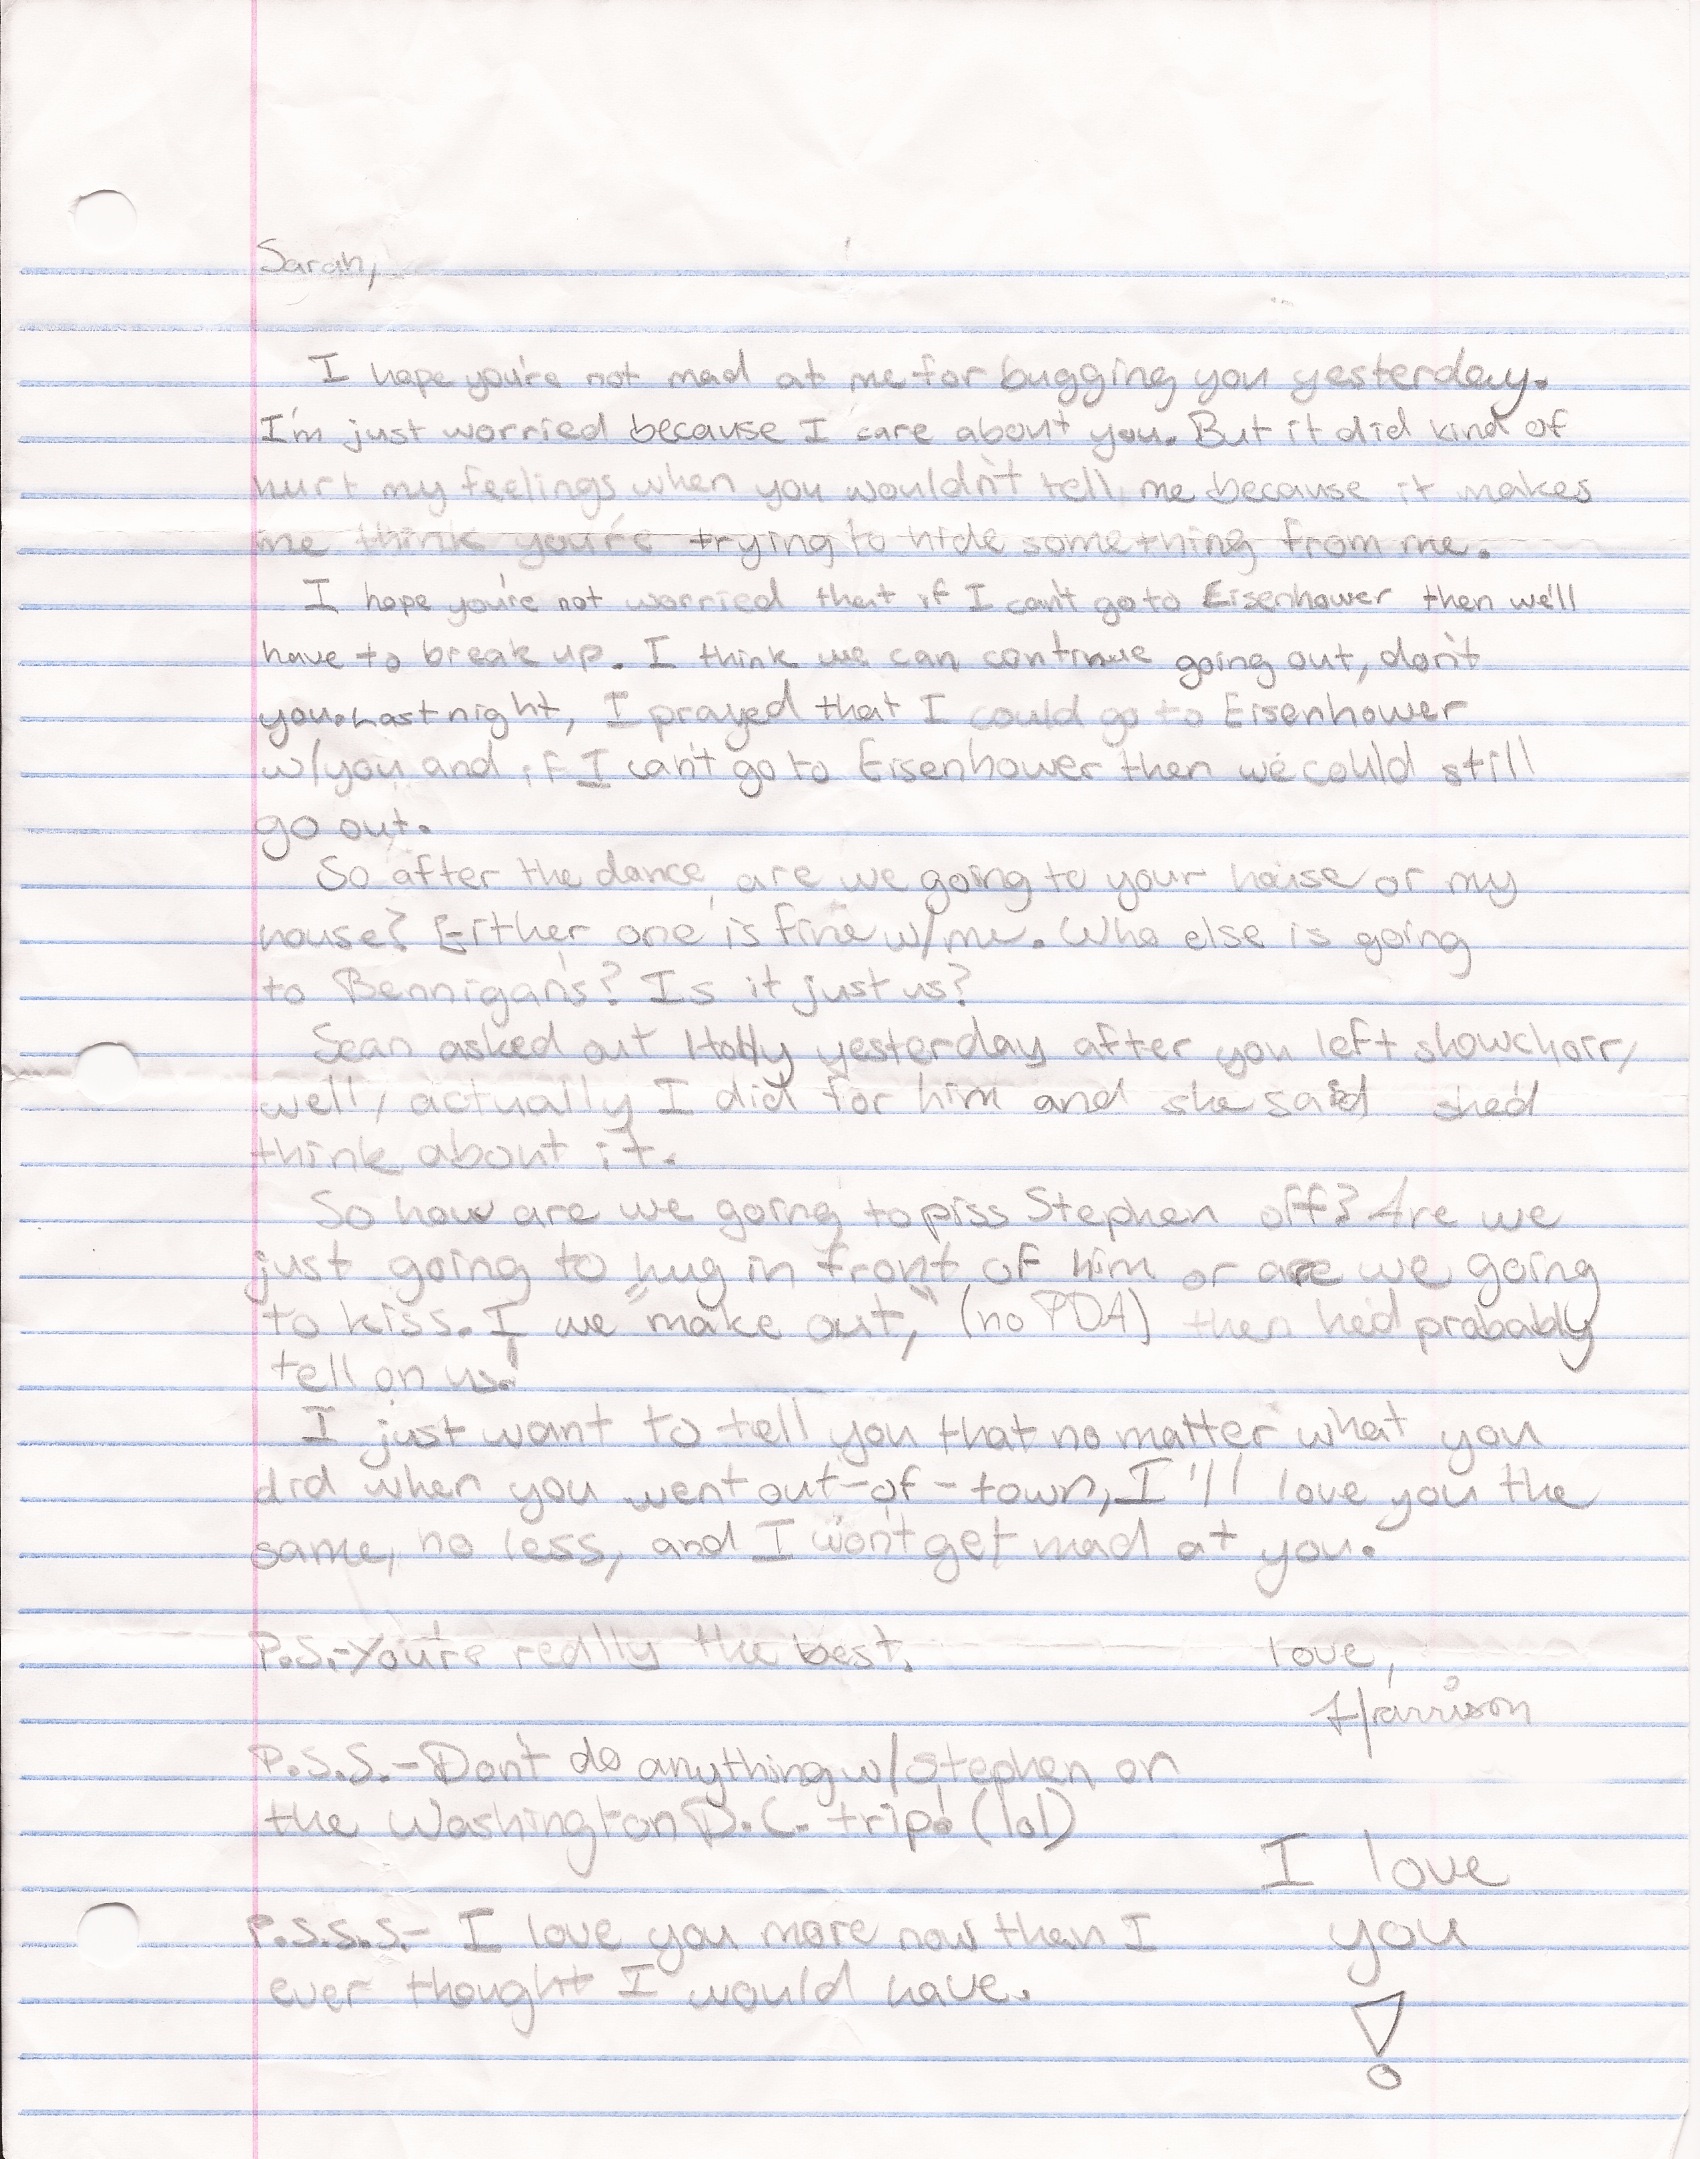 Sarah,
I hope you're not mad at me for bugging you yesterday.
I'm just worried because I care about you. But it did kind of
hurt my feelings when you wouldn't tell me because it makes
me think you're trying to hide something from me.
I hope you're not worried that if I can't go to Eisenhower then we'll
have to break up. I think we can continue going out, don't
you. Last night, I prayed that I could go to Eisenhower
w/you and if I can't go to Eisenhower then we could still
go out.
So after the dance, are we going to your house or my
house? Either one is fine w/me. Who else is going
to Bennigan's? Is it just us?
Sean asked out Holly yesterday after you left showchoir,
well, actually I did for him and she said she'd
think about it.
So how are we going to piss Stephen off? Are we
just going to hug in front of him or are we going
to kiss. I we "make out," (no PDA) then he'd probably
tell on us!
I just want to tell you that no matter what you
did when you went out-of-town, I'll love you the
same, no less, and I won't get mad at you.
P.S.-You're really the best.
love,
Harrison
P.S.S.-Don't do anything w/Stephen on
the Washington D.C. trip! (lol)
P.S.S.S.- I love you more now than I
ever thought I would have.
I love
you
!